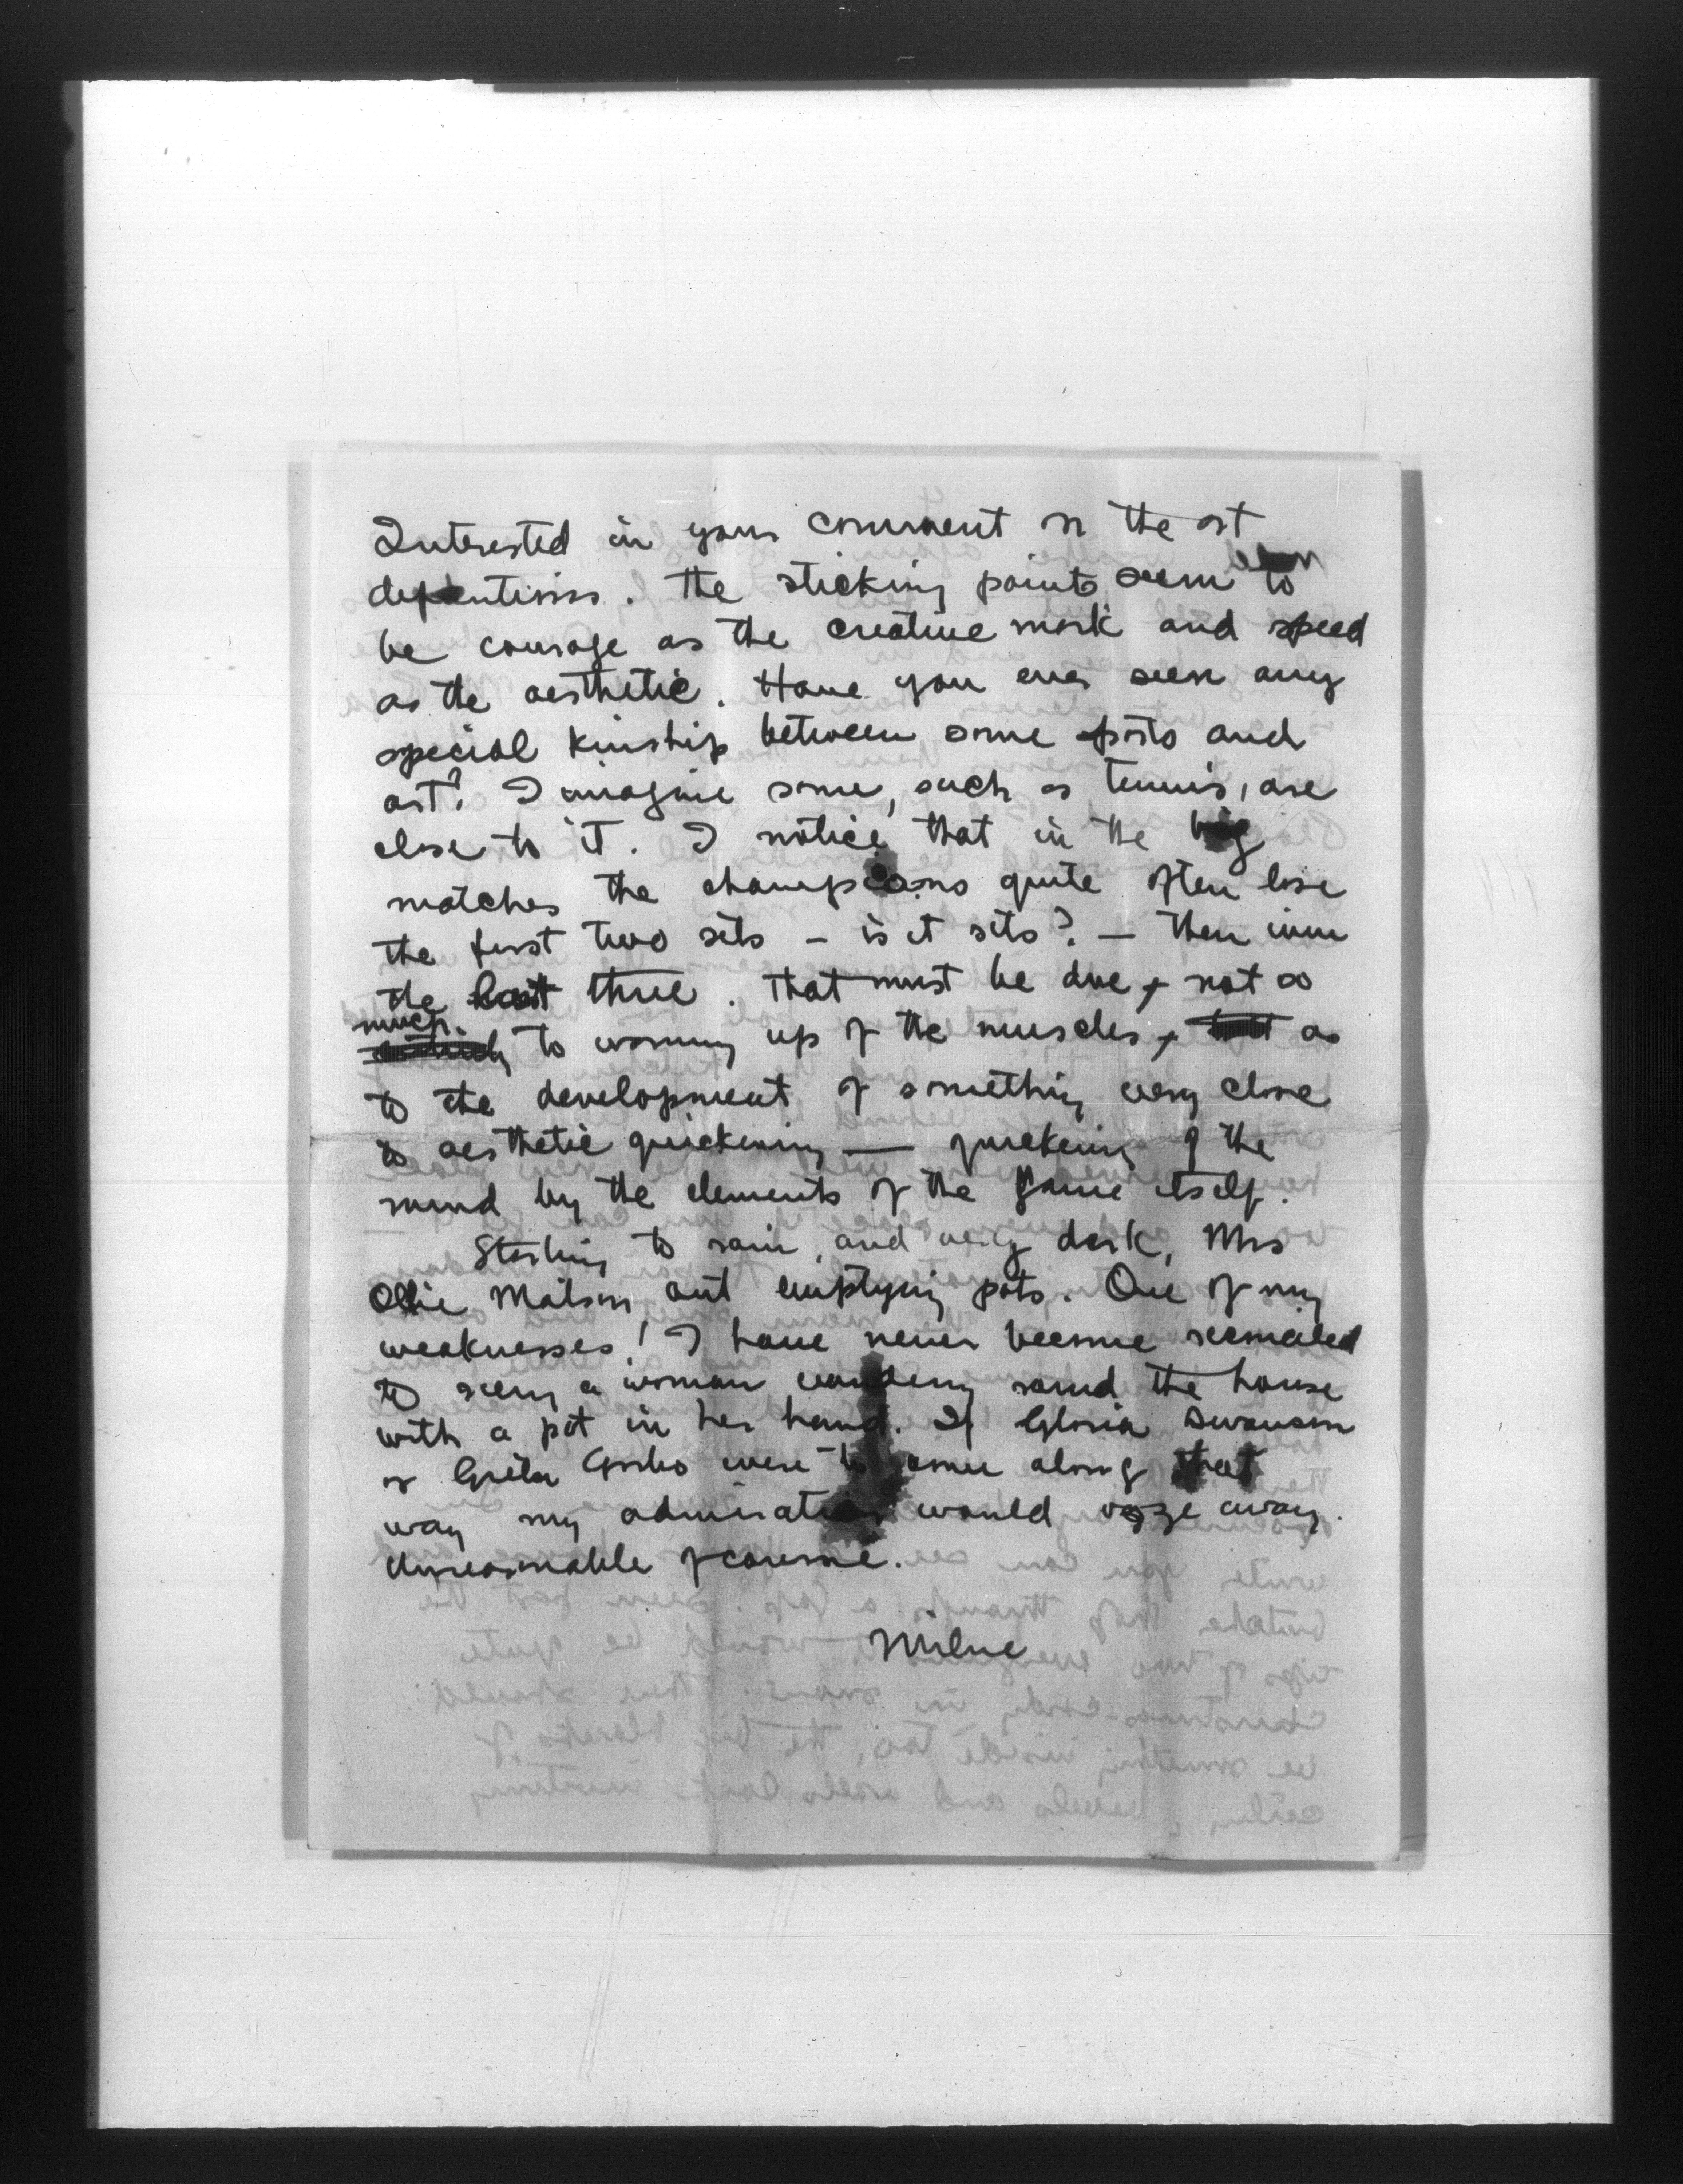 Interested in your comment on the art
definitions. The sticking points seem to
be courage as the creative mark and speed
as the aesthetic. Have you ever seen any
special kinship between some sports and
art? I imagine some, such as tennis, are
close to it. I notice that in the big
matches the champions quite often lose
the first two sets – is it sets? – then win
the last three. That must be due, not so
much to warming up of the muscles, as
to the development of something very close
to aesthetic quickening — quickening of the
mind by the elements of the game itself.
Starting to rain, and very dark, Mrs
Ollie Matson out emptying pots. One of my
weaknesses! I have never become reconciled
to seeing a woman wandering round the house
with a pot in her hand. If Gloria Swanson
or Greta Garbo were to come along that
way my admiration would ooze away.
Unreasonable of course.
Milne